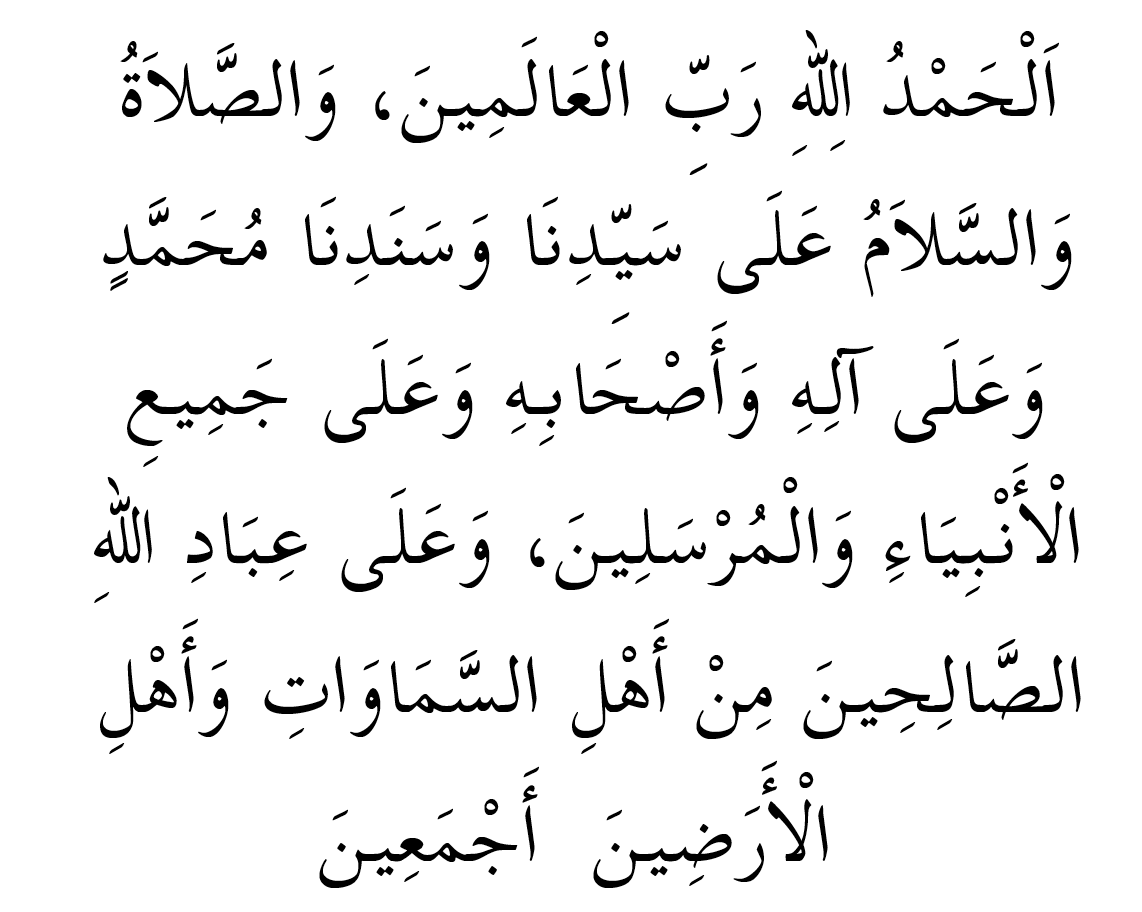 اَلْحَمْدُ لِلهِ رَبِّ الْعَالَمِينَ، وَالصَّلاَةُ
وَالسَّلاَمُ عَلَى سَيِّدِنَا وَسَنَدِنَا مُحَمَّدٍ
وَعَلَى آلِهِ وَأَصْحَابِهِ وَعَلَى جَمِيعِ
الْأَنْبِيَاءِ وَالْمُرْسَلِينَ، وَعَلَى عِبَادِ اللهِ
الصَّالِحِينَ مِنْ أَهْلِ السَّمَاوَاتِ وَأَهْلِ
الْأَرَضِينَ أَجْمَعِينَ